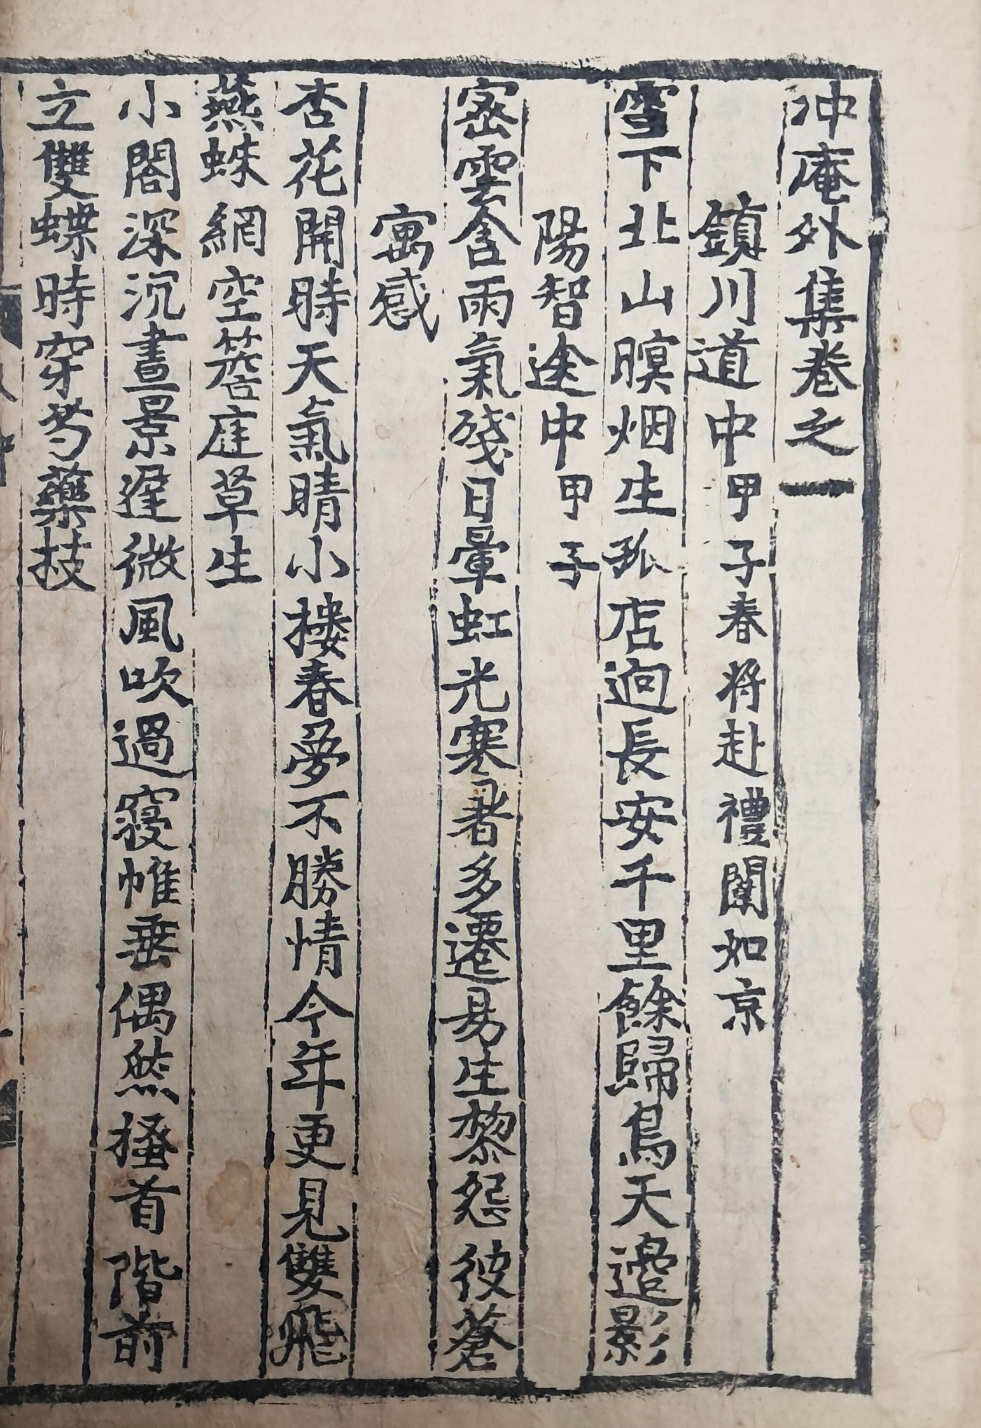 冲庵外集卷之一
鎮川道中甲子春將赴禮闈如京
雪下北山暝烟生孤店逈長安千里餘歸鳥天邊影
陽智途中甲子
密雲含雨氣殘日暈虹光寒暑多遷易生黎怨彼蒼
寓感
杏花開時天氣晴小樓春夢不勝情今年更見雙飛
燕蛛網空簷庭草生
小閤深沉晝景遲微風吹過寢帷垂偶然搔首階前
立雙蝶時穿芍藥枝